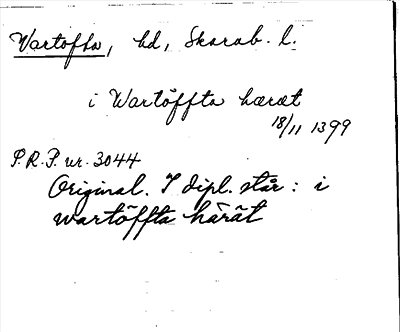 Vartofta, hd, Skarab. l.
i Wartöffta hæræt
18/11 1399
P.R.P. nr. 3044
Original. I dipl. står: i
wartöffta härät